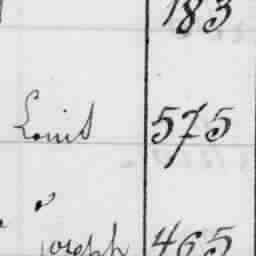 183
Louis 575
" Joseph 465